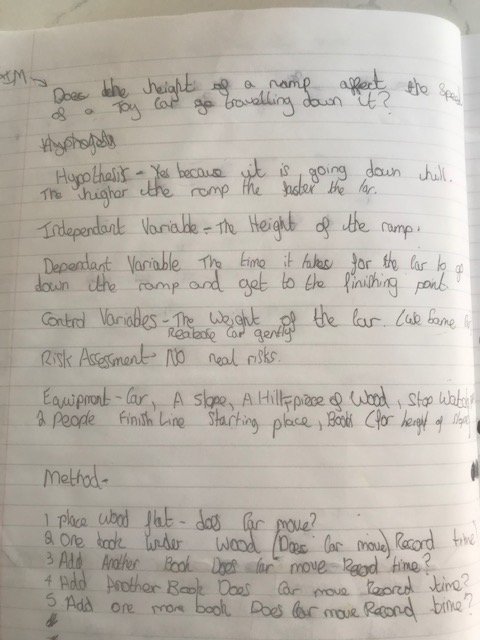 AIM →
Does the height of a ramp affect the speed
of a Toy Car go travelling down it?
Hypothesis
Hypothesis - Yes because it is going down hill.
The higher the ramp the faster the Car.
Independant Variable - The Height of the ramp.
Dependant Variable The time it takes for the Car to go
down the ramp and get to the finishing point.
Control Variables - The Weight of the Car. (use Same
Realease Car gently
Risk Assessment - NO real risks.
Equipment - Car, A Slope, A Hill, piece of Wood, Stop Watch
2 People Finish Line Starting place, Books (for height of slope
Method -
1 place wood flat - does Car move?
2 One book under wood (Does Car move) Record time
3 Add Another Book Does Car move Record time?
4 Add Another Book Does Car move Record time?
5 Add one more book Does Car move Record time?